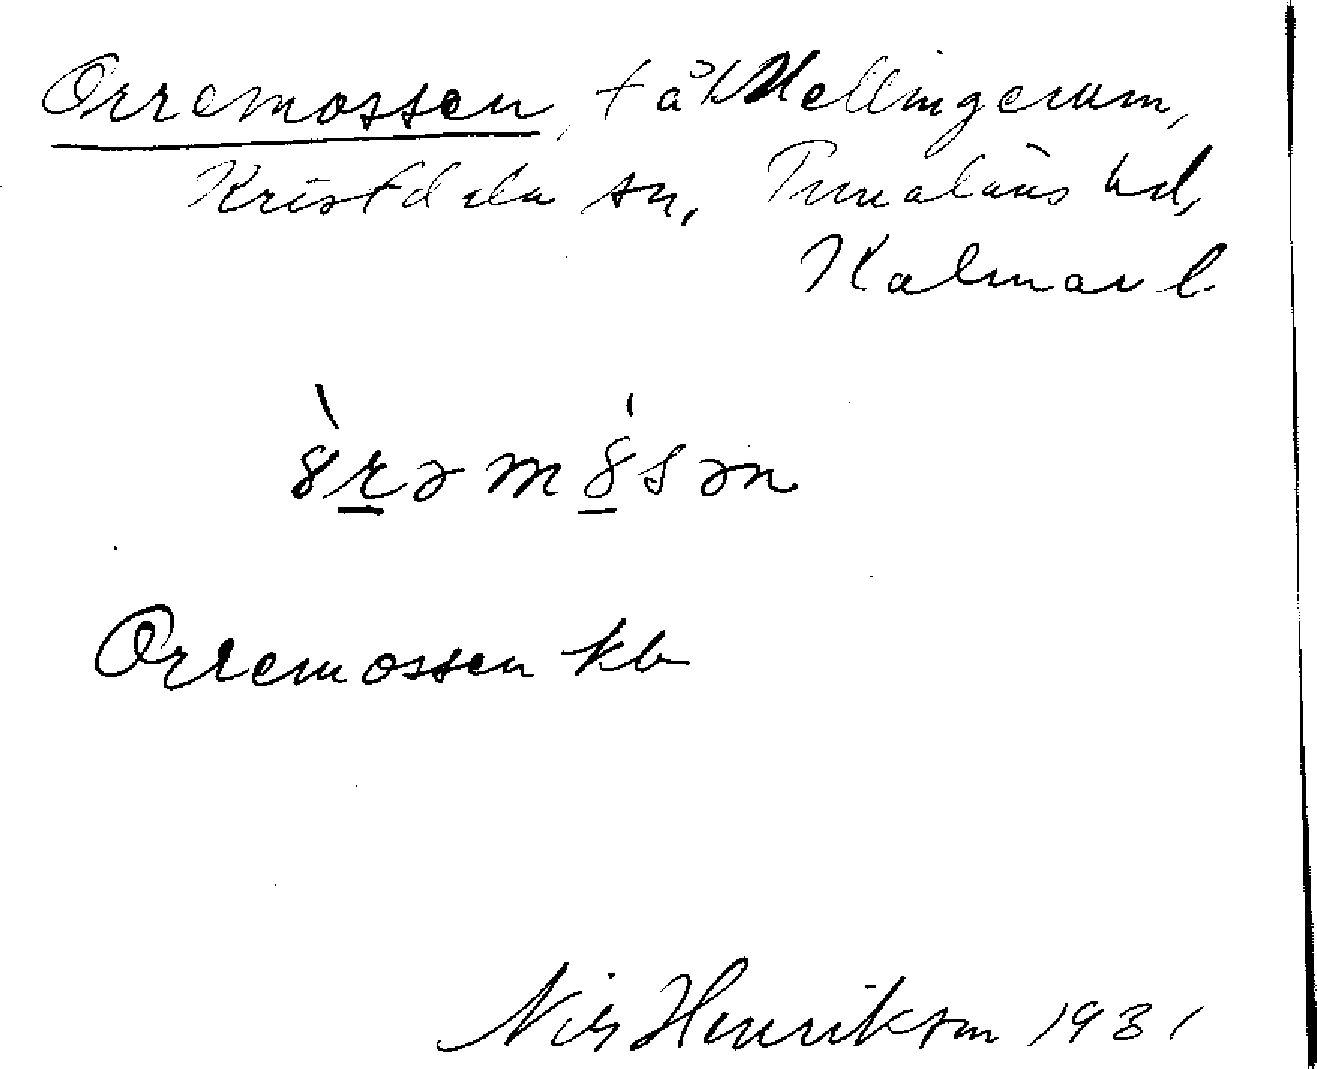 Orremossen, t å Hellingerum,
Kristdala sn, Tunaläns hd,
Kalmar l.
8̀rəm8́sən
Orremossen kb
Nils Henrikson 1931